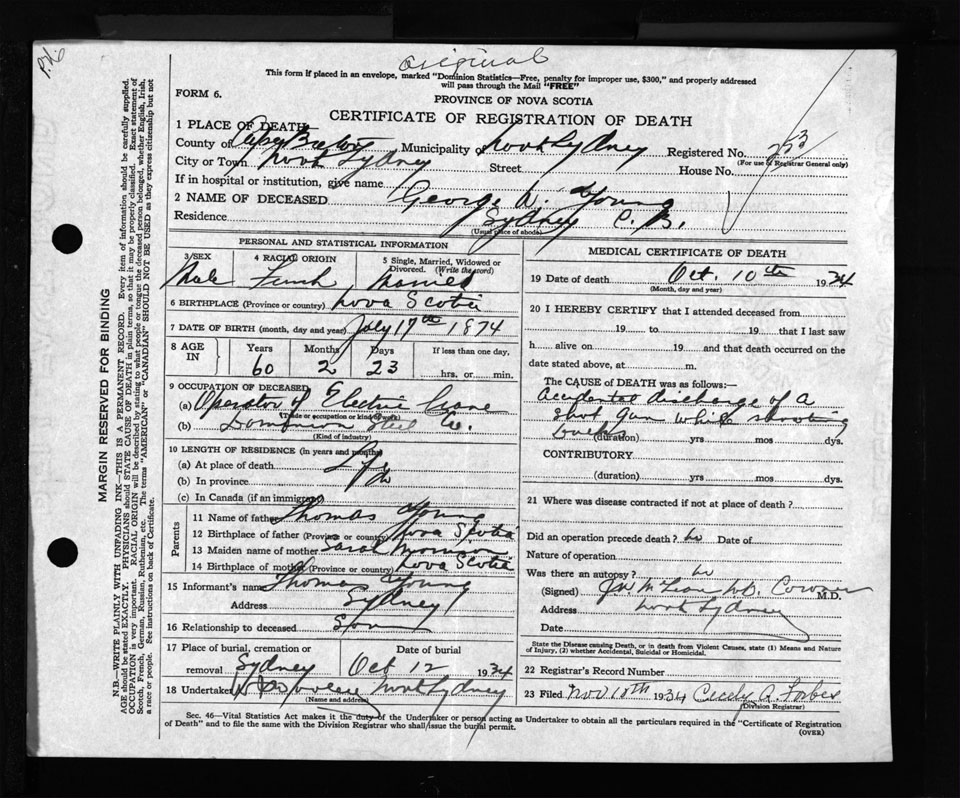 P.X.6
Original
This form if placed in an envelope, marked "Dominion Statistics—Free, penalty for improper use, $300," and properly addressed
will pass through the Mail "FREE"
FORM 6.
PROVINCE OF NOVA SCOTIA
CERTIFICATE OF REGISTRATION OF DEATH
1 PLACE OF DEATH
County of Cape Breton Municipality North Sydney Registered No. 253
(For use of Registrar General only)
City or Town North Sydney Street House No.
If in hospital or institution, give name
2 NAME OF DECEASED George W. Young
Residence Sydney C. B.
(Usual place of abode)
PERSONAL AND STATISTICAL INFORMATION
3 SEX 4 RACIAL ORIGIN 5 Single, Married, Widowed or
Divorced. (Write the word)
Male French Married
6 BIRTHPLACE (Province or country) Nova Scotia
7 DATE OF BIRTH (month, day and year) July 17th 1874
8 AGE IN Years Months Days If less than one day,
60 2 23 hrs. or min.
9 OCCUPATION OF DECEASED
(a) Operator of Electric Crane
(Trade or occupation or kind of work)
(b) Dominion Steel Co.
(Kind of industry)
10 LENGTH OF RESIDENCE (in years and months)
(a) At place of death Life
(b) In province do
(c) In Canada (if an immigrant)
Parents
11 Name of father Thomas Young
12 Birthplace of father (Province or country) Nova Scotia
13 Maiden name of mother Sarah
14 Birthplace of mother (Province or country) Nova Scotia
15 Informant's name Thomas Young
Address Sydney
16 Relationship to deceased Son
17 Place of burial, cremation or Date of burial
removal Sydney Oct 12 1934
18 Undertaker North Sydney
(Name and address)
MEDICAL CERTIFICATE OF DEATH
19 Date of death Oct. 10th 1934
(Month, day and year)
20 I HEREBY CERTIFY that I attended deceased from
19 to 19 that I last saw
h alive on 19 and that death occurred on the
date stated above, at m.
The CAUSE of DEATH was as follows:
Accidental discharge of a
shot gun while shooting
(duration) yrs mos dys.
CONTRIBUTORY
(duration) yrs mos dys.
21 Where was disease contracted if not at place of death?
Did an operation precede death? no Date of
Nature of operation
Was there an autopsy? no
(Signed) Coroner M.D.
Address North Sydney
Date
State the Disease causing Death, or in death from Violent Causes, state (1) Means and Nature
of Injury, (2) whether Accidental, Suicidal or Homicidal.
22 Registrar's Record Number
23 Filed Nov 10th 1934 Cecely A. Forbes
(Division Registrar)
Sec. 46—Vital Statistics Act makes it the duty of the Undertaker or person acting as Undertaker to obtain all the particulars required in the "Certificate of Registration
of Death" and to file the same with the Division Registrar who shall issue the burial permit.
(OVER)
MARGIN RESERVED FOR BINDING
N.B.—WRITE PLAINLY WITH UNFADING INK—THIS IS A PERMANENT RECORD. Every item of information should be carefully supplied.
AGE should be stated EXACTLY. PHYSICIANS should STATE CAUSE OF DEATH in plain terms, so that it may be properly classified. Exact statement of
OCCUPATION is very important. RACIAL ORIGIN will be described by stating to what people or tongue the deceased person belonged, whether English, Irish,
Scotch, French, German, Russian, Ruthenian, etc. The terms "AMERICAN" or "CANADIAN" SHOULD NOT BE USED as they express citizenship but not
a race or people. See instructions on back of Certificate.